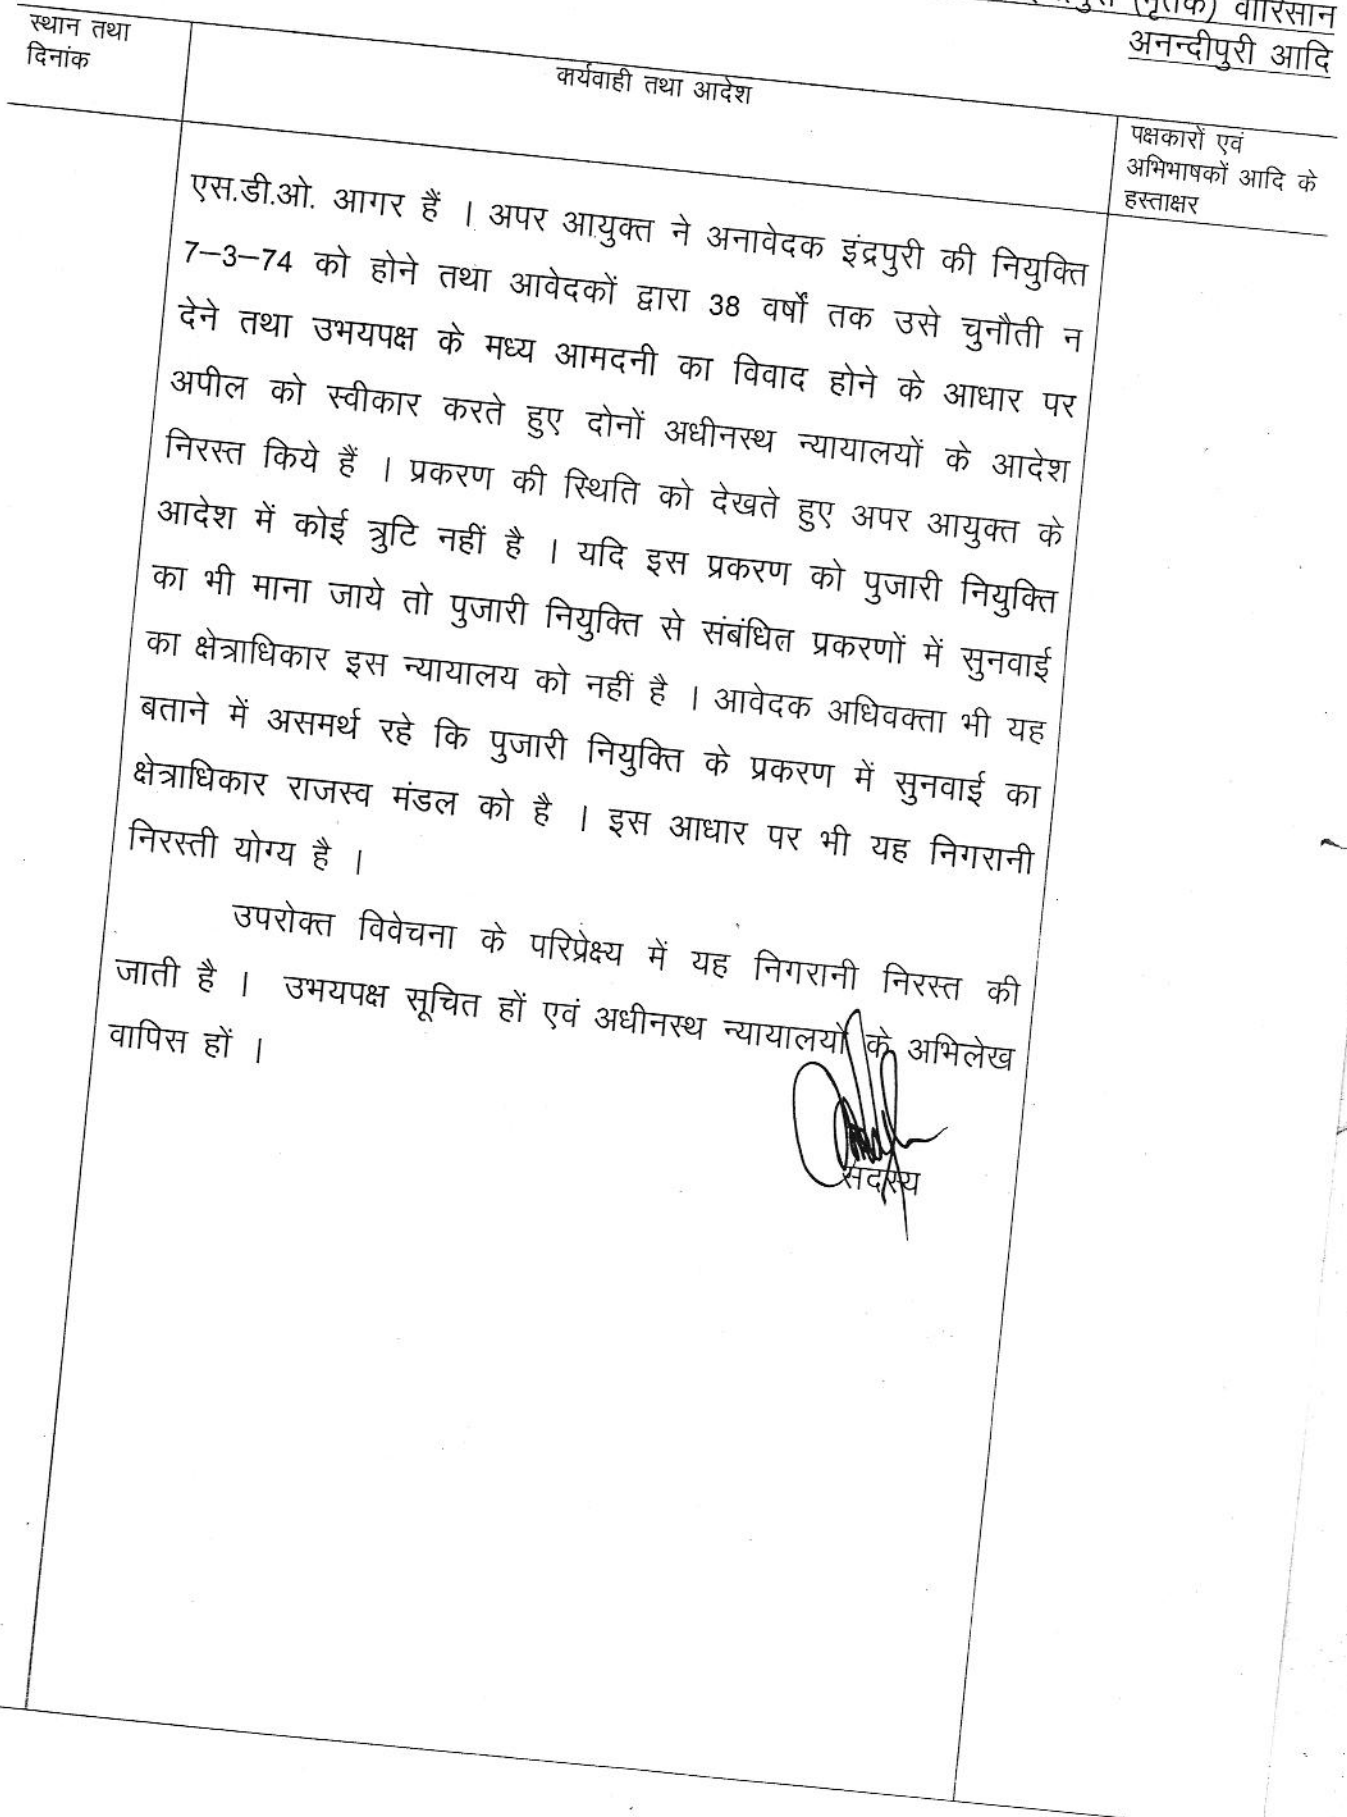 (मृतक) वारिसान
अनन्दीपुरी आदि
स्थान तथा
दिनांक
कार्यवाही तथा आदेश
पक्षकारों एवं
अभिभाषकों आदि के
हस्ताक्षर
एस.डी.ओ. आगर हैं । अपर आयुक्त ने अनावेदक इंद्रपुरी की नियुक्ति
7–3–74 को होने तथा आवेदकों द्वारा 38 वर्षों तक उसे चुनौती न
देने तथा उभयपक्ष के मध्य आमदनी का विवाद होने के आधार पर
अपील को स्वीकार करते हुए दोनों अधीनस्थ न्यायालयों के आदेश
निरस्त किये हैं । प्रकरण की स्थिति को देखते हुए अपर आयुक्त के
आदेश में कोई त्रुटि नहीं है । यदि इस प्रकरण को पुजारी नियुक्ति
का भी माना जाये तो पुजारी नियुक्ति से संबंधित प्रकरणों में सुनवाई
का क्षेत्राधिकार इस न्यायालय को नहीं है । आवेदक अधिवक्ता भी यह
बताने में असमर्थ रहे कि पुजारी नियुक्ति के प्रकरण में सुनवाई का
क्षेत्राधिकार राजस्व मंडल को है । इस आधार पर भी यह निगरानी
निरस्ती योग्य है ।
उपरोक्त विवेचना के परिप्रेक्ष्य में यह निगरानी निरस्त की
जाती है । उभयपक्ष सूचित हों एवं अधीनस्थ न्यायालयों के अभिलेख
वापिस हों ।
सदस्य